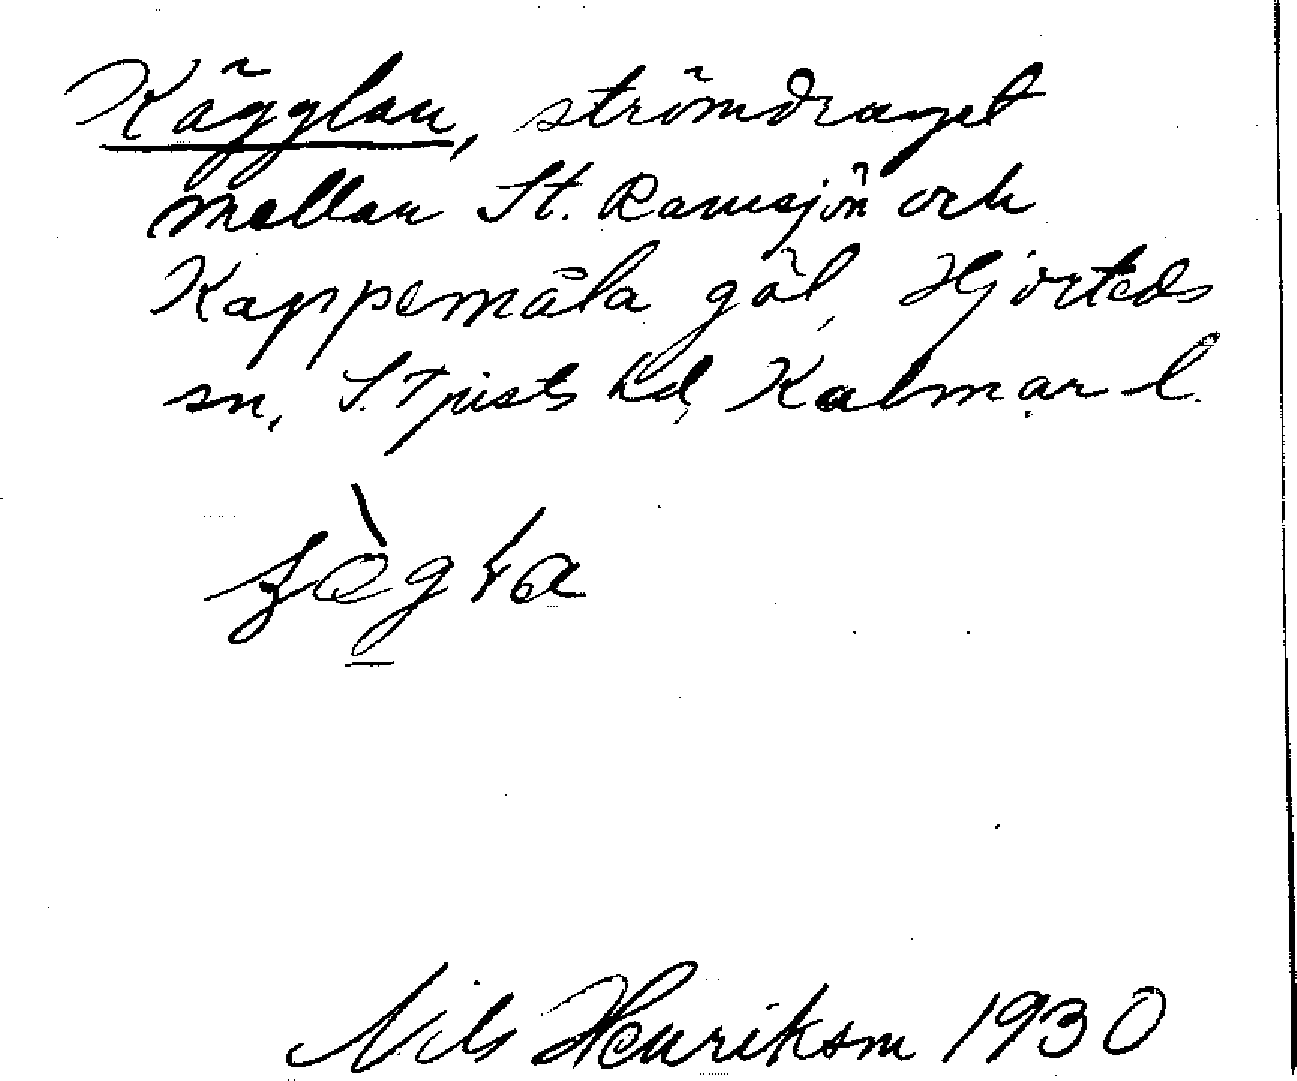 Kägglan, strömdraget
mellan St. Ramsjön och
Kappemåla göl, Hjorteds
sn, S. Tjusts hd, Kalmar l.
Nils Henriksson 1930